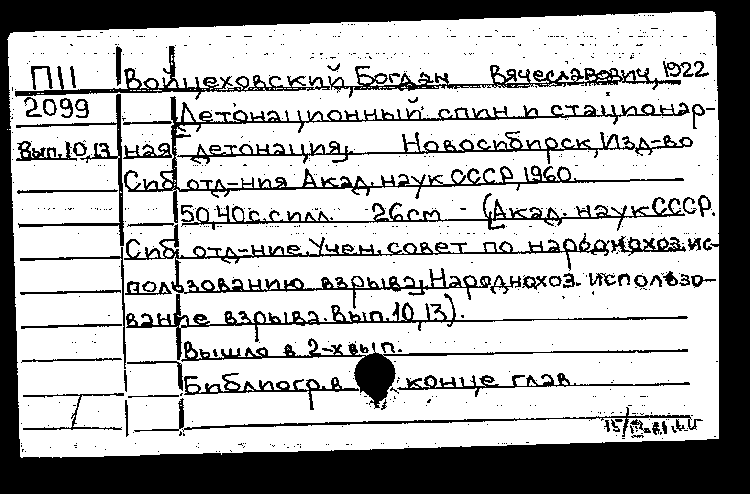 П11 Войцеховский, Богдан Вячеславович, 1922
2099 Детонационный спин и стационар-
Вып. 10, 13 ная детонация. Новосибирск, Изд-во
Сиб. отд-ния Акад. наук СССР, 1960.
50, 40 с. с илл. 26 см - (Акад. наук СССР.
Сиб. отд-ние. Учен. совет по народнохоз. ис-
пользованию взрыва. Народнохоз. использо-
вание взрыва. Вып. 10, 13).
Вышло в 2-х вып.
Библиогр. в конце глав